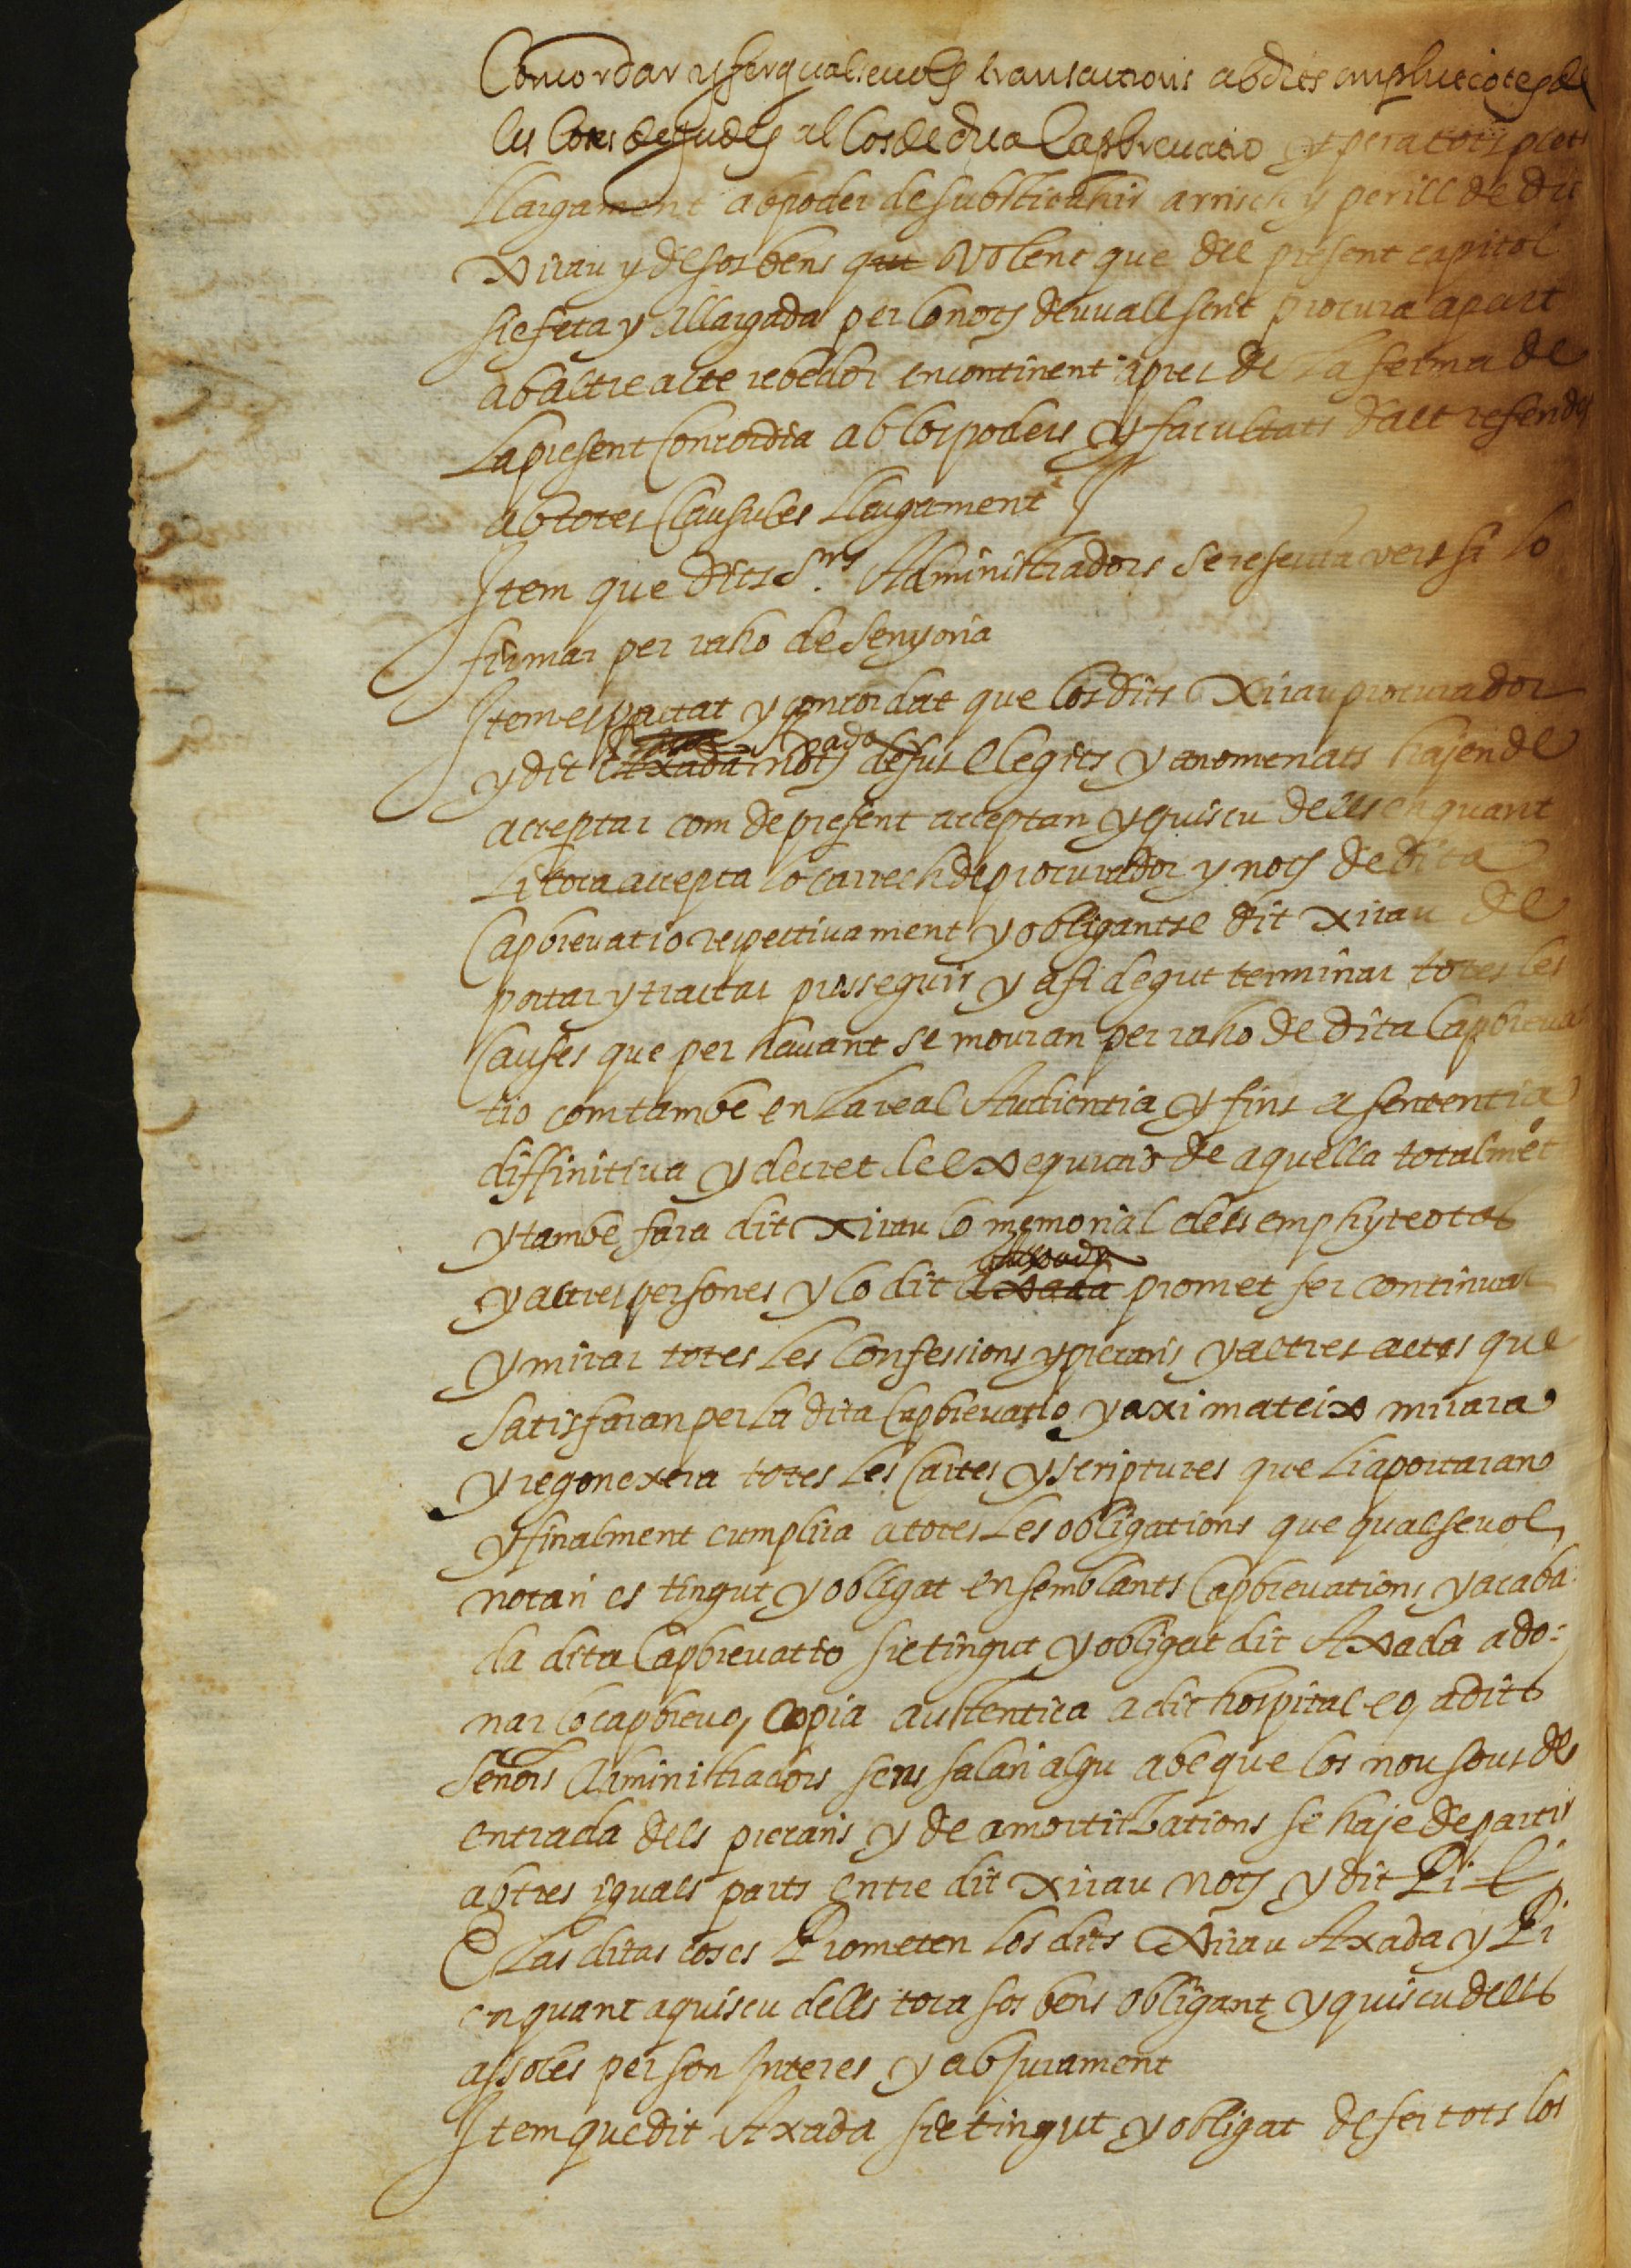 Concordar y fer qualseuols transactions ab dits emphiteotes de
les coses degudes al Cos de dita Capbreuatio y pera tots plets
Llargament ab poder de substituhir a rrisch y perill de dit
Xirau y de sos bens que Volent que del present capitol
sie feta y allargada per lo nots deuuall scrit procura apart
ab altre acte rebedor encontinent apres de la ferma de
La present Concordia ab los poders y facultats dalt referides
ab totes Clausules Llargament
Item que dits Snrs Administradors se reserua
firmar per raho de senyoria
Item es pactat y concordat que los dits Xirau procurador
y dit Axada nots desus elegits y anomenats hajen de
acceptar com de present acceptan y quiscu dells en quant
Li toca accepta lo carrech de procurador y nots de dita
Capbreuatio respectiuament y obligantse dit Xirau de
portar y tractar prosseguir y a fi degut terminar totes les
Causes que per hauant se mouran per raho de dita Capbreua
tio com tambe en La real Audientia y fins a sententia
diffinitiua y decret de exequutio de aquella totalmet
y tambe fara dit Xirau lo memorial dels emphyteotas
y altres persones y lo dit Axada promet fer continuar
y mirar totes les Confessions y precaris y altres actes que
Satisfaran per La dita Capbreuatio y axi mateix mirara
y regonexera totes les Cartes y scriptures que li aportaran
y finalment cumplira a totes Les obligations que qualseuol
notari es tingut y obligat en semblants Capbreuations y acaba
da dita Capbreuatio sie tingut y obligat dit Axada a do:
nar lo capbreu, Copia authentica a dit hospital eo, a dits
Señors Administradors sens salari algu ab que los nou sous de
entrada dels precaris y de amortitzations se haje de partir
ab tres iguals parts entre dit Xirau nots y dit Pi
E las ditas coses Prometen los dits Xirau Axada y Pi
en quant a quiscu dells toca sos bens obligant, y quiscu dells
assoles per son Interes y ab Jurament
Item que dit Axada sie tingut y obligat de fer tots los